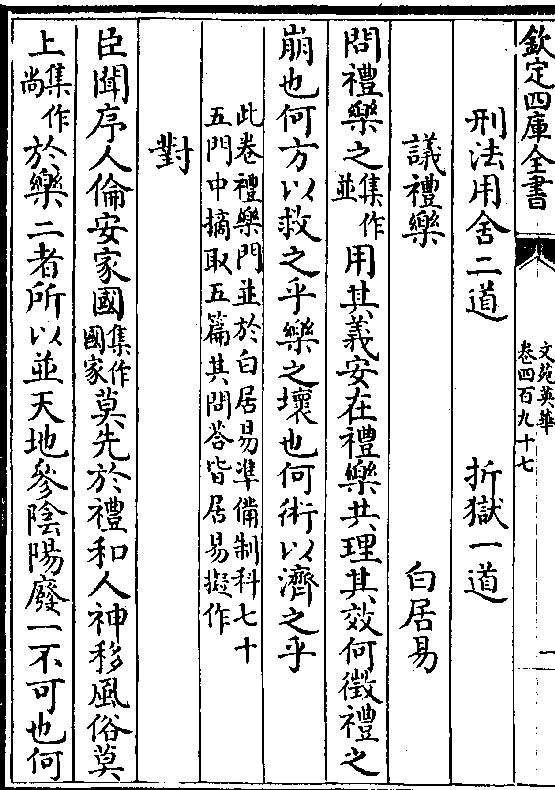 欽定四庫全書
文苑英華
卷四百九十七
一
刑法用舍二道　折獄一道
議禮樂　白居易
問禮樂之集作並用其義安在禮樂共理其效何徵禮之
崩也何方以救之乎樂之壞也何術以濟之乎
此卷禮樂門並於白居易準備制科七十
五門中摘取五篇其問荅皆居易擬作
對
臣聞序人倫安家國集作國家莫先於禮和人神移風俗莫
上集作尚於樂二者所以並天地參陰陽廢一不可也何